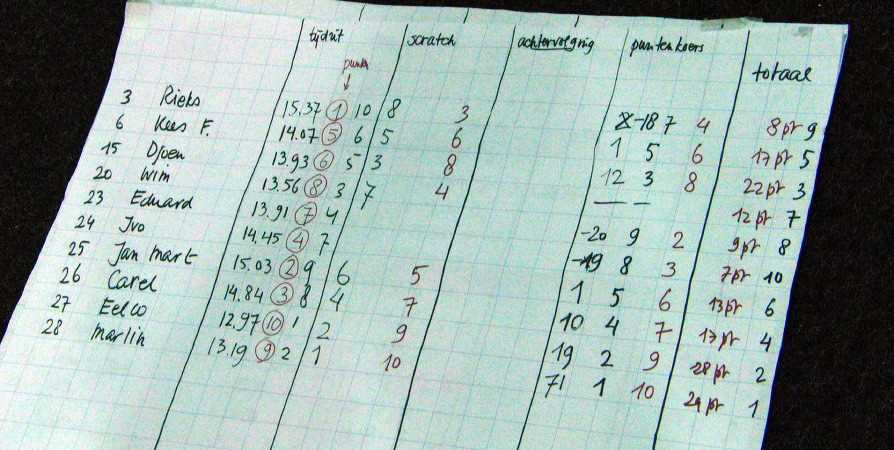 tijdrit scratch achtervolging puntenkoers totaal
punten
3 Rieks 15.37 1 10 8 3 -18 7 4 8pt 9
6 Kees F. 14.07 5 6 5 6 1 5 6 17pt 5
15 Djoen 13.93 6 5 3 8 12 3 8 22pt 3
20 Wim 13.56 8 3 7 4 — — 12pt 7
23 Eduard 13.91 7 4 -20 9 2 9pt 8
24 Ivo 14.45 4 7 -19 8 3 7pt 10
25 Jan Mart 15.03 2 9 6 5 1 5 6 13pt 6
26 Carel 14.84 3 8 4 7 10 4 7 17pt 4
27 Eelco 12.97 10 1 2 9 19 2 9 28pt 2
28 Marlin 13.19 9 2 1 10 71 1 10 29pt 1